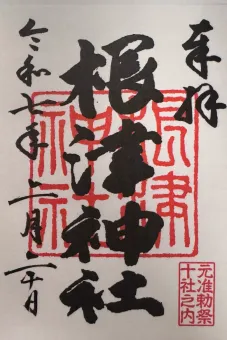 奉拝
根津神社
根津
神社
元准勅祭
十社之内
令和七年二月二十日